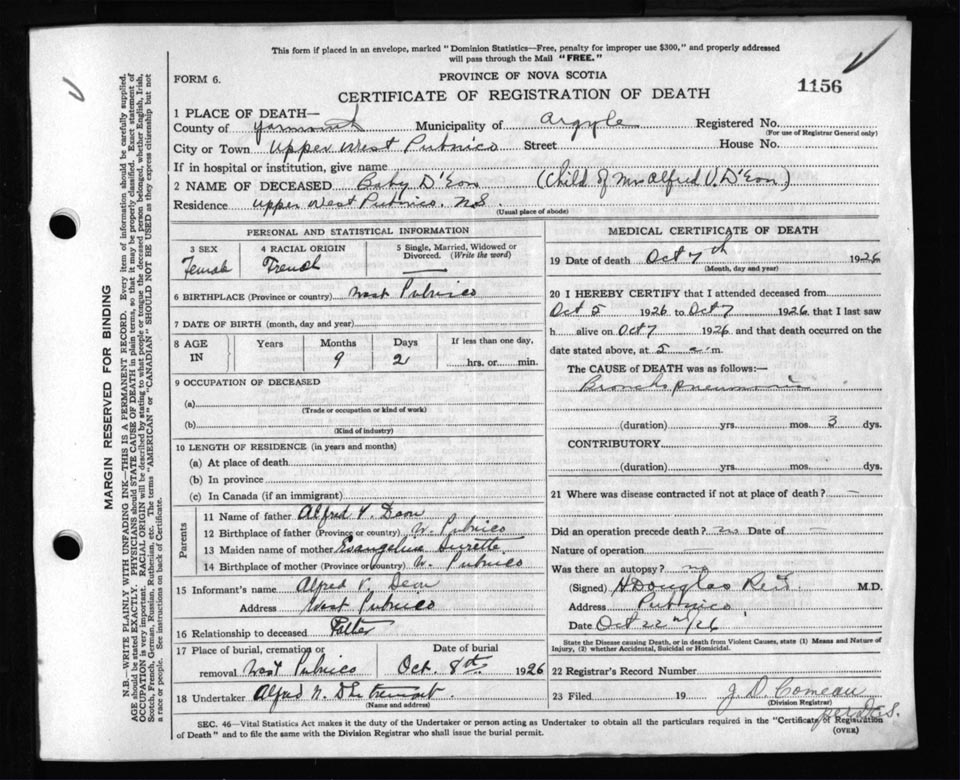 This form if placed in an envelope, marked "Dominion Statistics—Free, penalty for improper use $300," and properly addressed
will pass through the Mail "FREE."
FORM 6.
PROVINCE OF NOVA SCOTIA
1156
CERTIFICATE OF REGISTRATION OF DEATH
1 PLACE OF DEATH—
County of Yarmouth Municipality of Argyle Registered No.
(For use of Registrar General only)
City or Town Upper West Pubnico Street House No.
If in hospital or institution, give name
2 NAME OF DECEASED Baby D'Eon (Child of Mr Alfred V. D'Eon)
Residence Upper West Pubnico. N.S.
(Usual place of abode)
PERSONAL AND STATISTICAL INFORMATION
3 SEX 4 RACIAL ORIGIN 5 Single, Married, Widowed or Divorced. (Write the word)
Female French —
6 BIRTHPLACE (Province or country) West Pubnico
7 DATE OF BIRTH (month, day and year)
8 AGE IN Years Months Days If less than one day,
9 2 hrs. or min.
9 OCCUPATION OF DECEASED
(a)
(Trade or occupation or kind of work)
(b)
(Kind of industry)
10 LENGTH OF RESIDENCE (in years and months)
(a) At place of death
(b) In province
(c) In Canada (if an immigrant)
Parents
11 Name of father Alfred V. Deon
12 Birthplace of father (Province or country) W. Pubnico
13 Maiden name of mother Evangeline Surette
14 Birthplace of mother (Province or country) W. Pubnico
15 Informant's name Alfred V. Deon
Address West Pubnico
16 Relationship to deceased Father
17 Place of burial, cremation or removal Date of burial
West Pubnico Oct. 8th 1926
18 Undertaker Alfred N. D'Entremont
(Name and address)
MEDICAL CERTIFICATE OF DEATH
19 Date of death Oct 7th 1926
(Month, day and year)
20 I HEREBY CERTIFY that I attended deceased from
Oct 5 1926 to Oct 7 1926, that I last saw
h alive on Oct 7 1926 and that death occurred on the
date stated above, at 5 a.m.
The CAUSE of DEATH was as follows:—
Bronchopneumonia
(duration) yrs. mos. 3 dys.
CONTRIBUTORY
(duration) yrs. mos. dys.
21 Where was disease contracted if not at place of death? —
Did an operation precede death? no Date of —
Nature of operation —
Was there an autopsy? no
(Signed) H Douglas Reid M.D.
Address Pubnico
Date Oct 22nd/26
State the Disease causing Death, or in death from Violent Causes, state (1) Means and Nature of
Injury, (2) whether Accidental, Suicidal or Homicidal.
22 Registrar's Record Number
23 Filed 19 J. D. Comeau
(Division Registrar)
SEC. 46—Vital Statistics Act makes it the duty of the Undertaker or person acting as Undertaker to obtain all the particulars required in the "Certificate of Registration
of Death" and to file the same with the Division Registrar who shall issue the burial permit.
(OVER)
MARGIN RESERVED FOR BINDING
N.B.—WRITE PLAINLY WITH UNFADING INK—THIS IS A PERMANENT RECORD. Every item of information should be carefully supplied.
AGE should be stated EXACTLY. PHYSICIANS should STATE CAUSE OF DEATH in plain terms, so that it may be properly classified. Exact statement of
OCCUPATION is very important. RACIAL ORIGIN will be described by stating to what people or tongue the deceased person belonged, whether English, Irish,
Scotch, French, German, Russian, Ruthenian, etc. The terms "AMERICAN" or "CANADIAN" SHOULD NOT BE USED as they express citizenship but not
a race or people. See instructions on back of Certificate.